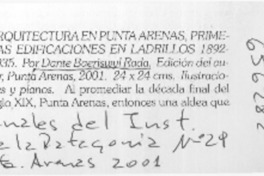 RQUITECTURA EN PUNTA ARENAS, PRIME-
AS EDIFICACIONES EN LADRILLOS 1892-
935. Por Dante Baeriswyl Rada. Edición del au-
r, Punta Arenas, 2001. 24 x 24 cms. Ilustracio-
es y planos. Al promediar la década final del
glo XIX, Punta Arenas, entonces una aldea que
nales del Inst.
e la Patagonia Nº 29
ta. Arenas 2001